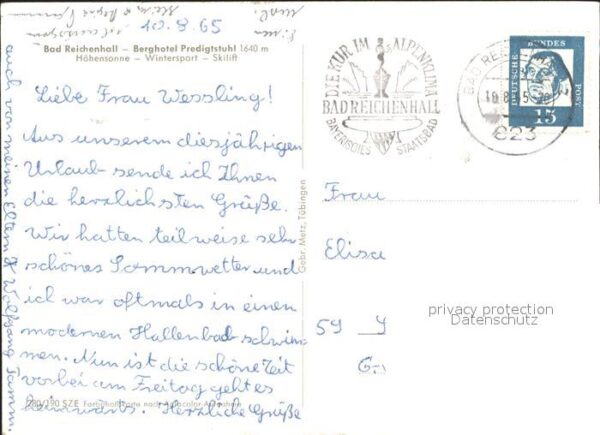 10.8.65
Bad Reichenhall – Berghotel Predigtstuhl 1640 m
Höhensonne – Wintersport – Skilift
Liebe Frau Wessling!
Aus unserem diesjährigen
Urlaub sende ich Ihnen
die herzlichsten Grüße.
Wir hatten teilweise sehr
schönes Sommwetter und
ich war oftmals in einem
modernen Hallenbad schwim-
men. Nun ist die schöne Zeit
vorbei am Freitag geht es
heimwärts. Herzliche Grüße
auch von meinen Eltern Wolfgang Tamm.
280/190 SZE
Gebr. Metz, Tübingen
DIE KUR IM ALPENKLIMA
BAD REICHENHALL
BAYERISCHES STAATSBAD
BAD REICHENHALL
823
DEUTSCHE BUNDESPOST
15
Frau
Elisa
59
privacy protection
Datenschutz